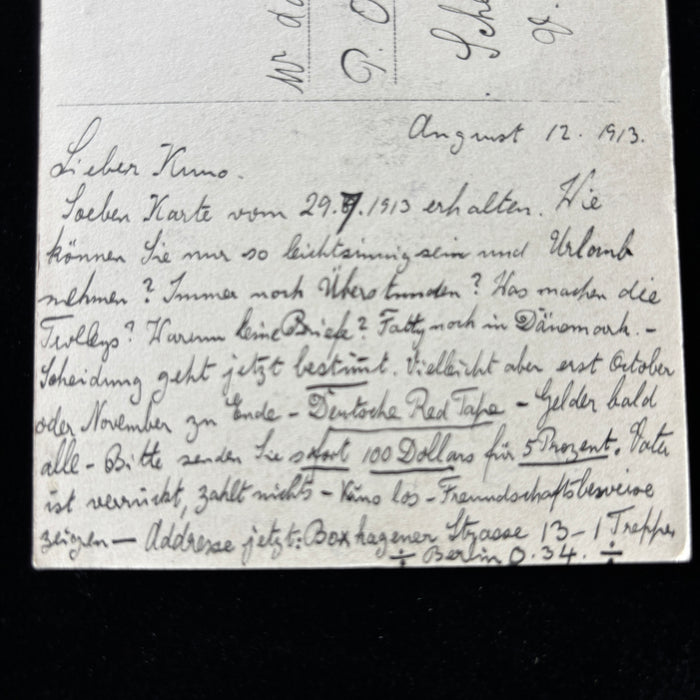 August 12. 1913.
Lieber Kuno.
Soeben Karte vom 29.7.1913 erhalten. Wie
können Sie nur so leichtsinnig sein und Urlaub
nehmen? Immer noch Überstunden? Was machen die
Trolleys? Warum keine Briefe? Fatty noch in Dänemark. -
Scheidung geht jetzt bestimt. Vielleicht aber erst October
oder November zu Ende - Deutsche Red Tape - Gelder bald
alle - Bitte senden Sie sofort 100 Dollars für 5 Prozent. Vater
ist verrückt, zahlt nichts - Kuno los - Freundschaftsbeweise
zeigen - Addresse jetzt: Boxhagener Strasse 13 - 1 Treppe
Berlin O. 34.